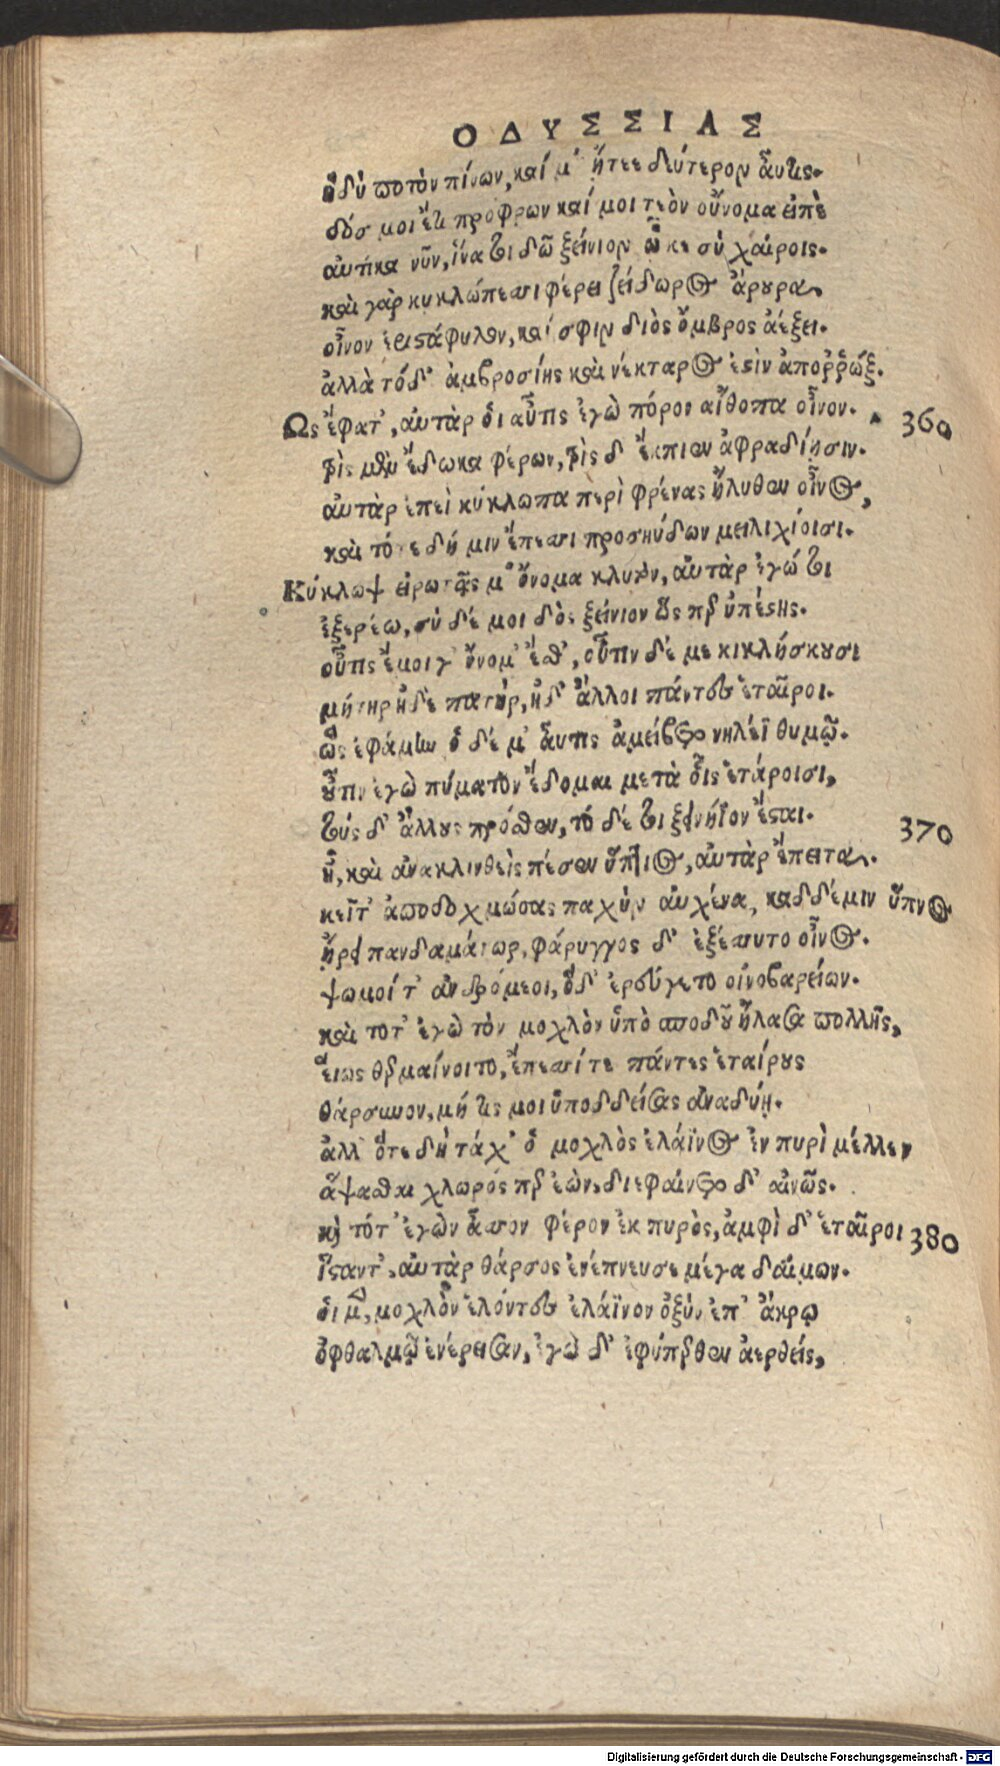 ΟΔΥΣΣΙΑΣ
ἡδὺ ποτὸν πίνων, καί μ' ἤτεε δεύτερον αὖτις.
δός μοι ἔτι πρόφρων καί μοι τεὸν οὔνομα εἰπὲ
αὐτίκα νῦν, ἵνα τι δῶ ξείνιον ᾧ κε σὺ χαίροις.
καὶ γὰρ κυκλώπεσσι φέρει ζείδωρος ἄρουρα
οἶνον ἐριστάφυλον, καί σφιν διὸς ὄμβρος ἀέξει.
ἀλλὰ τόδ' ἀμβροσίης καὶ νέκταρος ἐστὶν ἀπορῤῥώξ.
Ὣς ἔφατ', αὐτὰρ οἱ αὖτις ἐγὼ πόρον αἴθοπα οἶνον. 360
τρὶς μὲν ἔδωκα φέρων, τρὶς δ' ἔκπιεν ἀφραδίησιν.
αὐτὰρ ἐπεὶ κύκλωπα περὶ φρένας ἤλυθεν οἶνος,
καὶ τότε δή μιν ἔπεσσι προσηύδων μειλιχίοισι.
Κύκλωψ εἰρωτᾷς μ' ὄνομα κλυτόν, αὐτὰρ ἐγώ τοι
ἐξερέω, σὺ δέ μοι δὸς ξείνιον ὥς περ ὑπέστης.
οὖτις ἔμοιγ' ὄνομ' ἔσθ', οὖτιν δέ με κικλήσκουσι
μήτηρ ἠδὲ πατὴρ, ἠδ' ἄλλοι πάντες ἑταῖροι.
ὣς ἐφάμην ὁ δέ μ' αὖτις ἀμείβετο νηλέϊ θυμῷ.
οὖτιν ἐγὼ πύματον ἔδομαι μετὰ οἷς ἑτάροισι,
τοὺς δ' ἄλλους πρόσθεν, τὸ δέ τοι ξεινήϊον ἔσται. 370
ἦ, καὶ ἀνακλινθεὶς πέσεν ὕπτιος, αὐτὰρ ἔπειτα.
κεῖτ' ἀποδοχμώσας παχὺν αὐχένα, καδδέμιν ὕπνος
ᾕρει πανδαμάτωρ, φάρυγγος δ' ἐξέσσυτο οἶνος.
ψωμοί τ' ἀνδρόμεοι, ὅδ' ἐρεύγετο οἰνοβαρείων.
καὶ τοτ' ἐγὼ τὸν μοχλὸν ὑπὸ σποδοῦ ἤλασα πολλῆς,
εἵως θερμαίνοιτο, ἔπεσσίτε πάντες ἑταίρους
θάρσυνον, μή τις μοι ὑποδδείσας ἀναδύη.
ἀλλ' ὅτε δὴ τάχ' ὁ μοχλὸς ἐλάϊνος ἐν πυρὶ μέλλεν
ἅψασθαι χλωρός περ ἐὼν, διεφαίνετο δ' αἰνῶς.
καὶ τότ' ἐγὼν ἆσσον φέρον ἐκ πυρὸς, ἀμφὶ δ' ἑταῖροι 380
ἵσταντ', αὐτὰρ θάρσος ἐνέπνευσε μέγα δαίμων.
οἱ μὲν, μοχλὸν ἑλόντες ἐλάϊνον ὀξὺν ἐπ' ἄκρῳ
ὀφθαλμῷ ἐνέρεισαν, ἐγὼ δ' ἐφύπερθεν ἀερθείς,
Digitalisierung gefördert durch die Deutsche Forschungsgemeinschaft - DFG